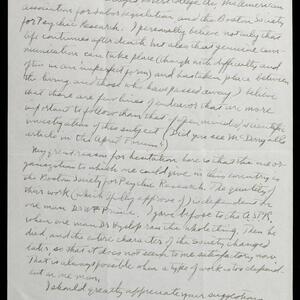 College, the American
Association for Labor Legislation and the Boston Society
for Psychic Research. I personally believe not only that
life continues after death but also that genuine com-
munication can take place (though with difficulty and
often in an imperfect form) and has taken place between
the living and those who have passed away. I believe
that there are few lines of endeavor that are more
important to follow than that of open minded scientific
investigation of this subject. (Did you see McDougall's
article in the April Forum?)
My great reason for hesitation here is that the one or-
ganization to which one could give in this country is
the Boston Society for Psychic Research. The quality of
their work (which I fully approve of) is dependent on
one man Dr. W. F. Prince. I gave before to the A.S.P.R.
when one man Dr Hyslop ran the whole thing. Then he
died and the entire character of the Society changed
later, so that it does not seem to me satisfactory now.
That is always possible when a type of work is so depend-
ent on one man.
I should greatly appreciate your suggestions